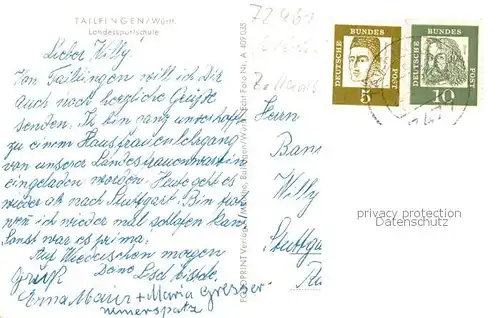 TAILFINGEN/Württ.
Landessportschule
Lieber Willy!
Von Tailfingen will ich Dir
auch noch herzliche Grüße
senden. Ich bin ganz unverhofft
zu einem Hausfrauenlehrgang
von unserer Landesfrauenwartin
eingeladen worden. Heute geht es
wieder ab nach Stuttgart. Bin froh
wenn ich wieder mal schlafen kann
sonst war es prima.
Auf Wiedersehen morgen
Gruß
Erna Maier + Maria Gresser
DEUTSCHE BUNDES POST
5
DEUTSCHE BUNDES POST
10
Herrn
Willy
Stuttga
privacy protection
Datenschutz